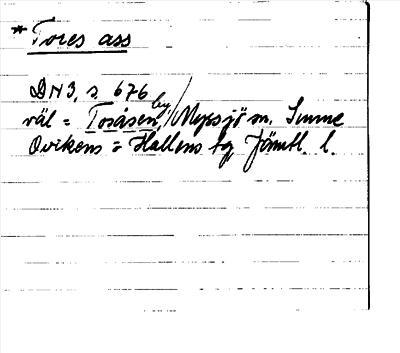 * Tores ass
DN 3, s. 676
väl = Tosåsen, by / Myssjö sn. Sunne
Ovikens = Hallens tg Jämtl. l.